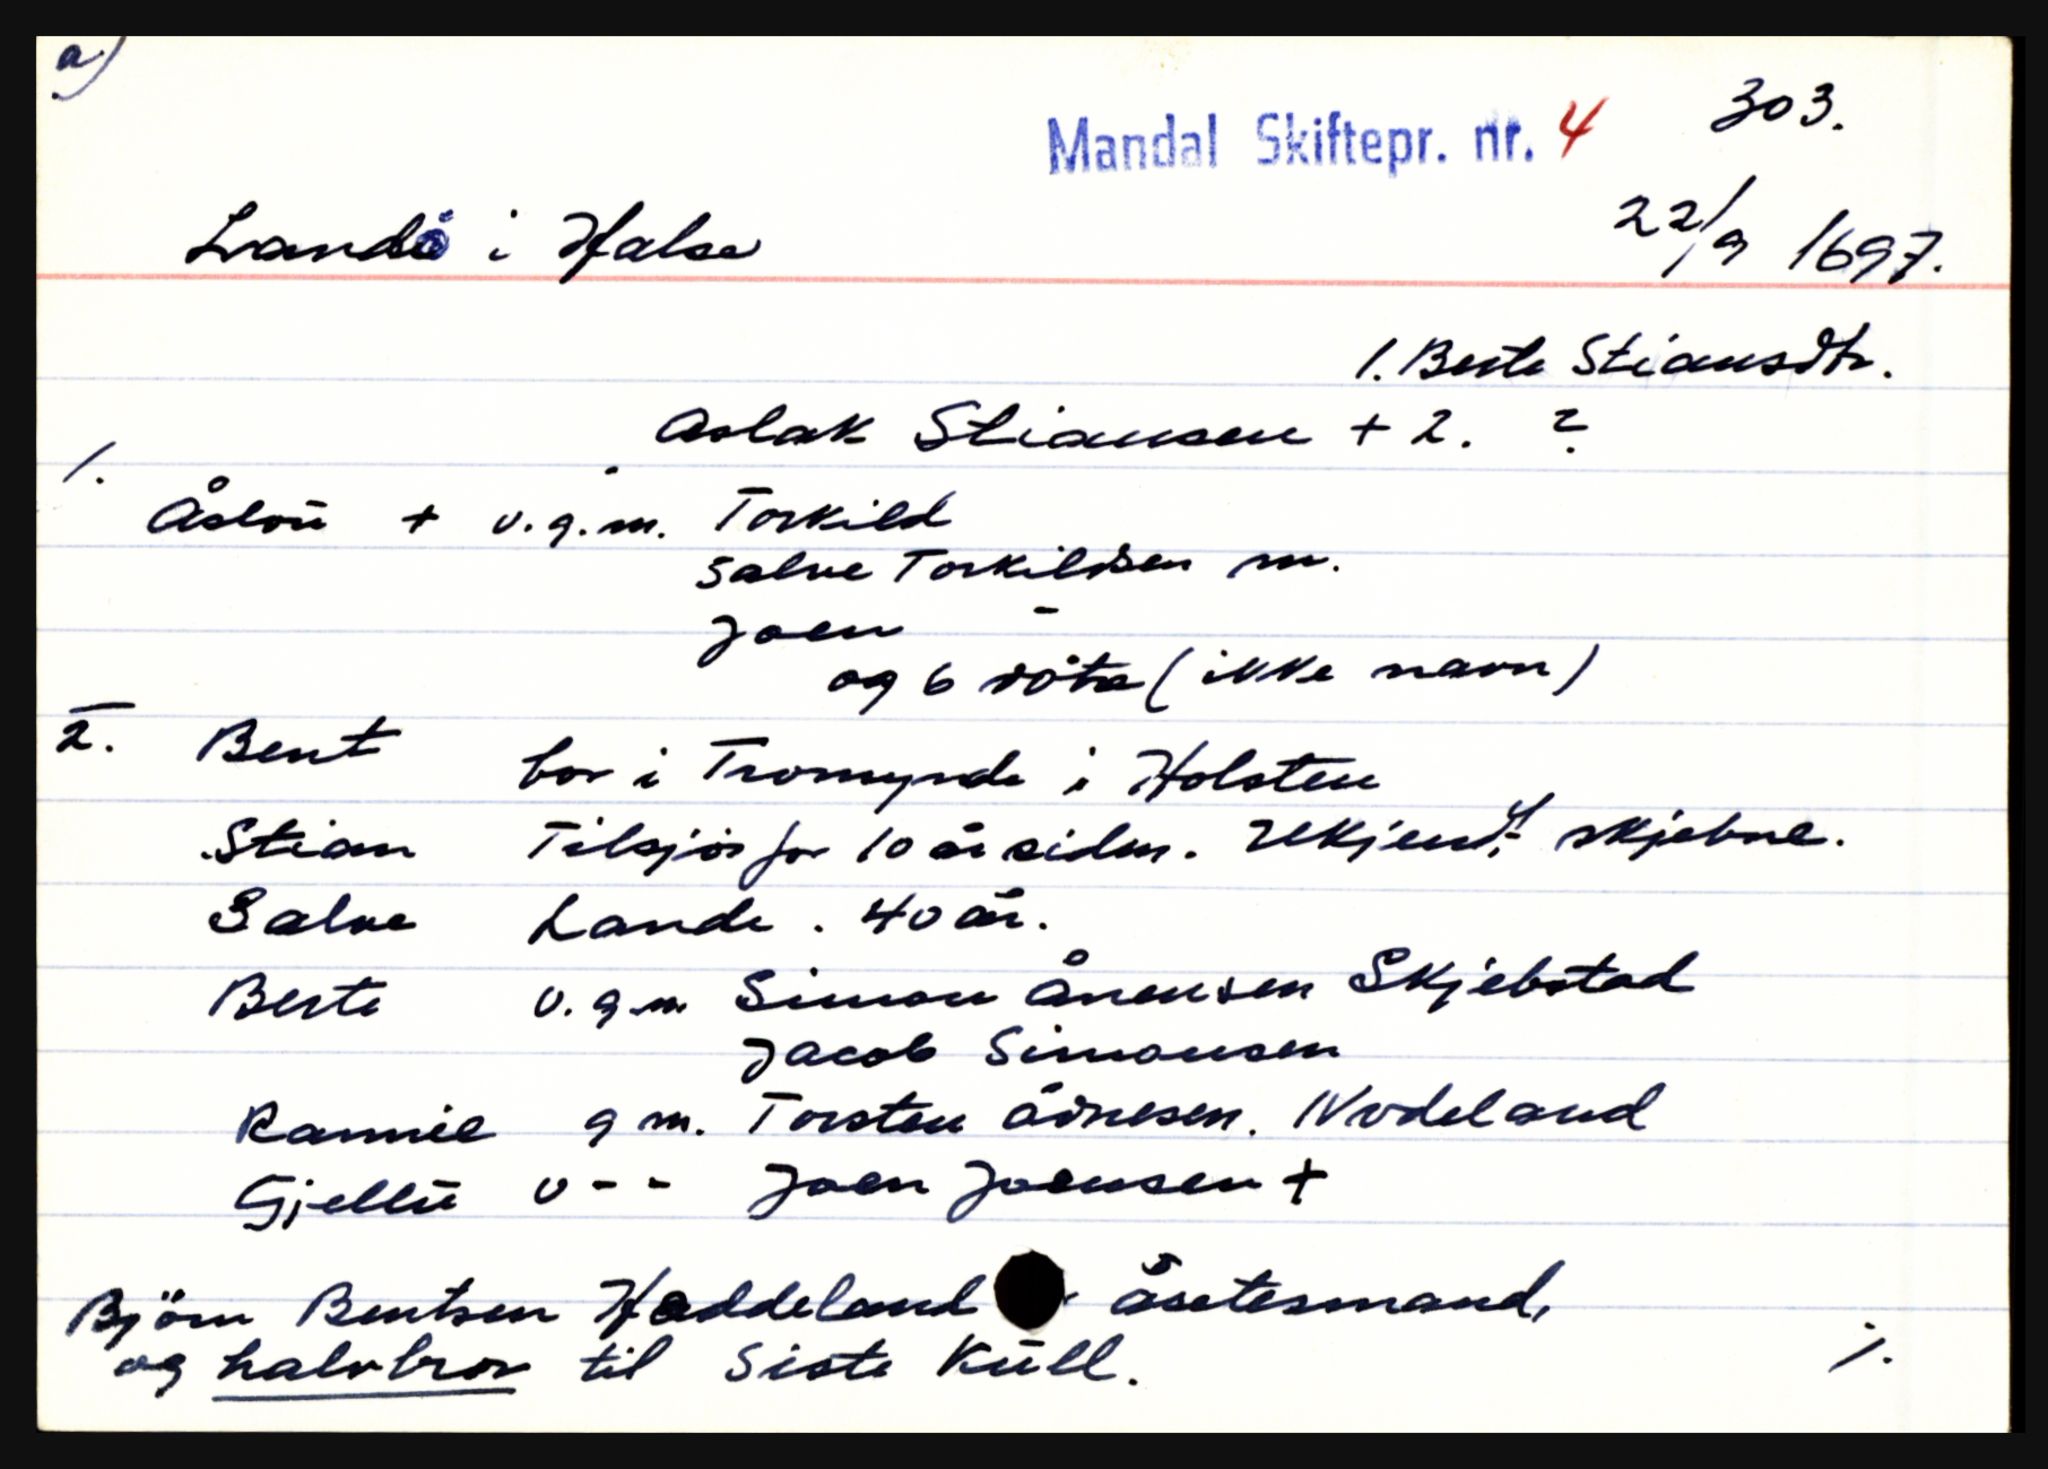 a)
Mandal Skiftepr. nr. 4 303.
Landö i Halse 22/9 1697.
1. Berte Stiansdtr.
Aslak Stiansen + 2. ?
1.
Åslou + v.g.m. Torkild
Salve Torkildsen m.
Joen -
og 6 döte (ikke navn)
2. Bent bor i Tromynde i Holsten
Stian Tilsjøs for 10 år siden. Ukjent skjebne.
Salve Lande. 40 år.
Berte v.g.m Simon Ånensen Skjebstad
Jacob Simonsen
Rannie g m. Torsten Ådnesen. Nodeland
Gjellu v - - Joen Joensen +
Björn Bentsen Haddeland åsetesmand,
og halvbror til Siste Kull.
/.